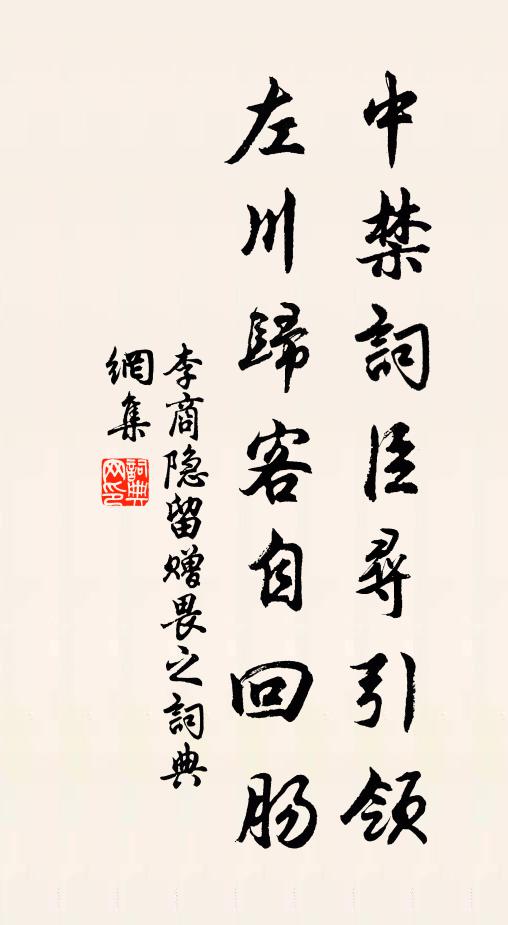 中禁詞臣尋引領
左川歸客自回肠
李商隐留赠畏之詞典
網集
詞典網印